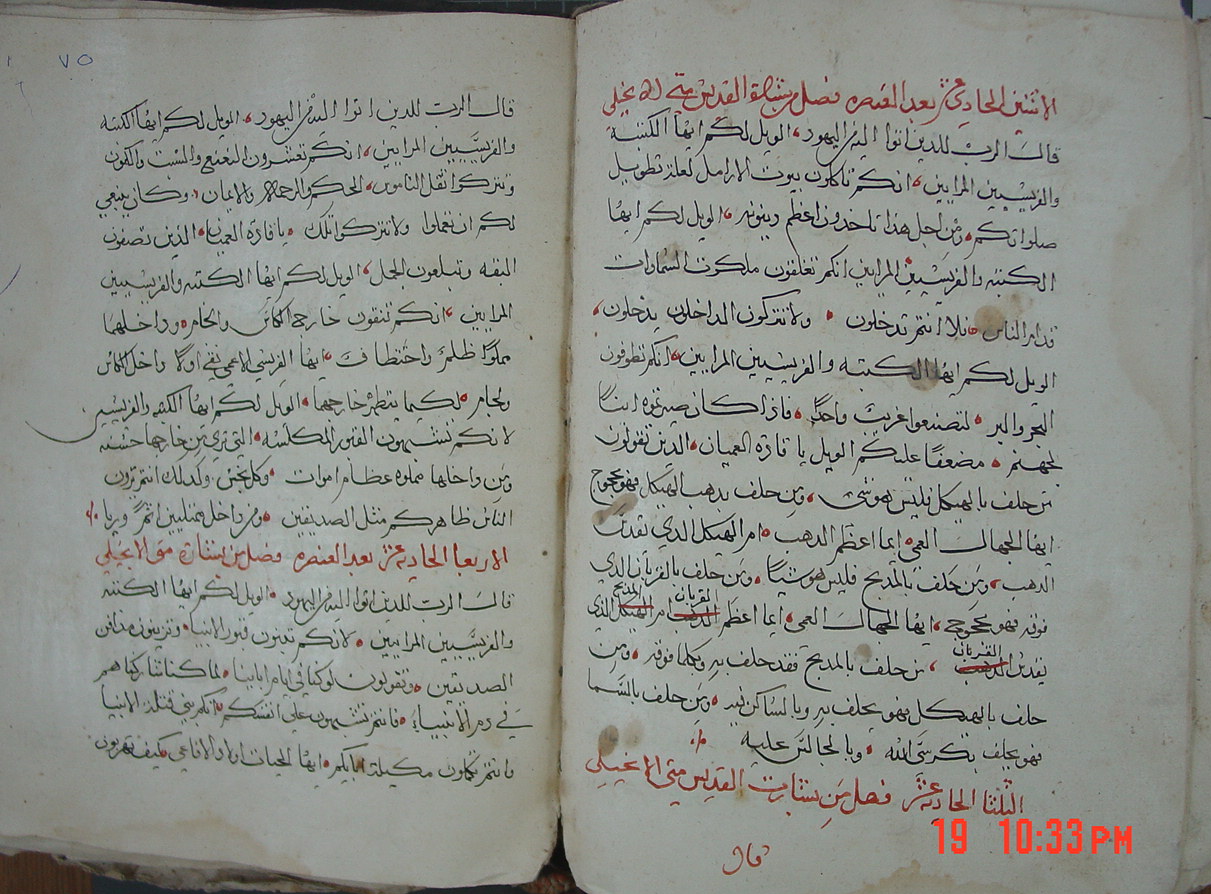 الاثنين الحادي عشر بعد العنصره فصل من بشارة القديس متي الانجيلي
قالَ الربّ للدين اتوا اليهِ من اليهود، الويل لكم ايها الكتبه
والفريسيين المرايين، انكم تاكلون بيوت الارامل لعلة تطويل
صلواتكم، ومن اجل هذا تاخدون اعظم دينونه، الويل لكم ايها
الكتبه والفريسيين المرايين انكم تغلقون ملكوت السماوات
قدام الناس، فلا انتم تدخلون، ولا تتركون الداخلون يدخلون،
الويل لكم ايها الكتبه والفريسيين المرايين، انكم تطوفون
البحر والبر، لتصنعوا غريبًا واحدًا، فاذا كان صيرتموه ابنًا
لجهنم، مضعفًا عليكم الويل يا قادة العميان، الدين تقولون
من حلف بالهيكل فليس هو شي، ومن حلف بدهب الهيكل فهو محجوج
ايها الجهال العمي، ايما اعظم الدهب، ام الهيكل الدي يقدس
الدهب، ومن حلف بالمدبح فليس هو شيًا، ومن حلف بالقربان الدي
فوقه فهو محجوج، ايها الجهال العمي، ايما اعظم الدهب القربان ام الهيكل المدبح الدي
يقدس الدهب القربان، من حلف بالمدبح فقد حلف به وبكلما فوقه، ومن
حلف بالهيكل فهو يحلف بهِ وبالساكن فيه، ومن حلف بالسما
فهو يحلف بكرسي الله، وبالجالس عليه
الثلثا الحاديه عشر فصل من بشارت القديس متي الانجيلي
قال
19 10:33 PM
٧٥
قال الرب للدين اتوا اليه من اليهود، الويل لكم ايها الكتبه
والفريسيين المرايين، انكم تعشرون النعنع والشبت والكمون
وتتركوا ثقل الناموس، الحكم والرحمه والايمان، وكان ينبغي
لكم ان تعملوا ولا تتركوا تلك، يا قادة العميان، الدين تصفون
البقه وتبلعون الجمل، الويل لكم ايها الكتبه والفريسيين
المرايين، انكم تنقون خارج الكاس والجام، وداخلهما
مملوًا ظلمًا واختطافًا، ايها الفريسي الاعمي نقي اولًا داخل الكاس
والجام، لكيما يتطهر خارجهما، الويل لكم ايها الكتبه والفريسيين
لانكم تشبهون القبور المكلسه، التي تري من خارجها حسنه
ومن داخلها مملوه عظام اموات، وكل نجس، وكدلك انتم ترون
الناس ظاهركم مثل الصديقين، ومن داخل ممتليين اثمًا وريا
الاربعا الحاديه عشر بعد العنصره فصل من بشارة متي الانجيلي
قالَ الرب للدين اتوا اليهِ من اليهود، الويل لكم ايها الكتبه
والفريسيين المرايين، لانكم تبنون قبور الانبيا، وتزينون مدافن
الصديقين، وتقولون لو كنا في ايام ابائنا، لما كنا شاركناهم
في دم الانبيا، فانتم تشهدون علي انفسكم، انكم بني قتلة الانبيا
وانتم تكملون مكيلة ابايكم، ايها الحيات اولاد الافاعي، كيف تهربون